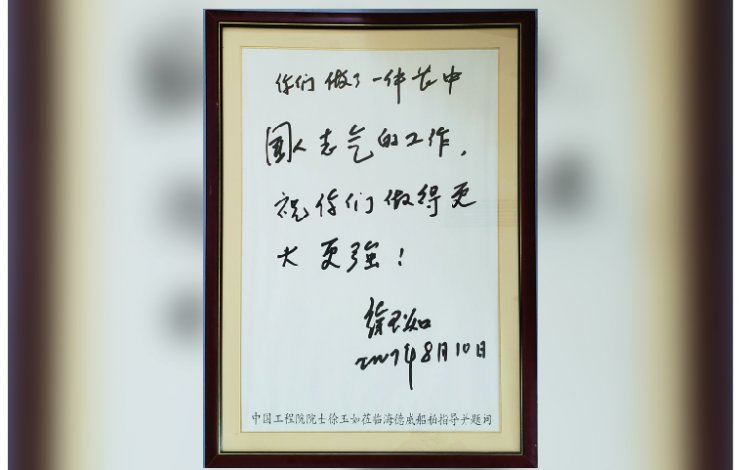 你们做了一件长中
国人志气的工作，
祝你们做得更
大更强！
徐玉如
2007年8月10日
中国工程院院士徐玉如莅临海德威船舶指导并题词